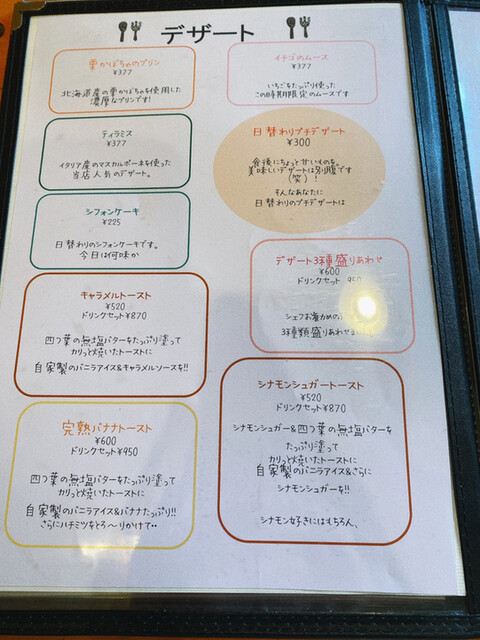 デザート
栗かぼちゃのプリン
¥377
北海道産の栗かぼちゃを使用した
濃厚なプリンです!
ティラミス
¥377
イタリア産のマスカルポーネを使った
当店人気のデザート。
シフォンケーキ
¥225
日替わりのシフォンケーキです。
今日は何味か
キャラメルトースト
¥520
ドリンクセット¥870
四つ葉の無塩バターをたっぷり塗って
カリっと焼いたトーストに
自家製のバニラアイス&キャラメルソースを!!
完熟バナナトースト
¥600
ドリンクセット¥950
四つ葉の無塩バターをたっぷり塗って
カリっと焼いたトーストに
自家製のバニラアイス&バナナたっぷり!!
さらにハチミツをとろ〜りかけて・・
イチゴのムース
¥377
いちごをたっぷり使った
この時期限定のムースです
日替わりプチデザート
¥300
食後にちょっと甘いものを。
美味しいデザートは別腹です
(笑)!
そんなあなたに
日替わりのプチデザートは
デザート3種盛りあわせ
¥600
ドリンクセット
シェフお薦めの
3種類盛りあわせ
シナモンシュガートースト
¥520
ドリンクセット¥870
シナモンシュガー&四つ葉の無塩バターを
たっぷり塗って
カリっと焼いたトーストに
自家製のバニラアイス&さらに
シナモンシュガーを!!
シナモン好きにはもちろん、